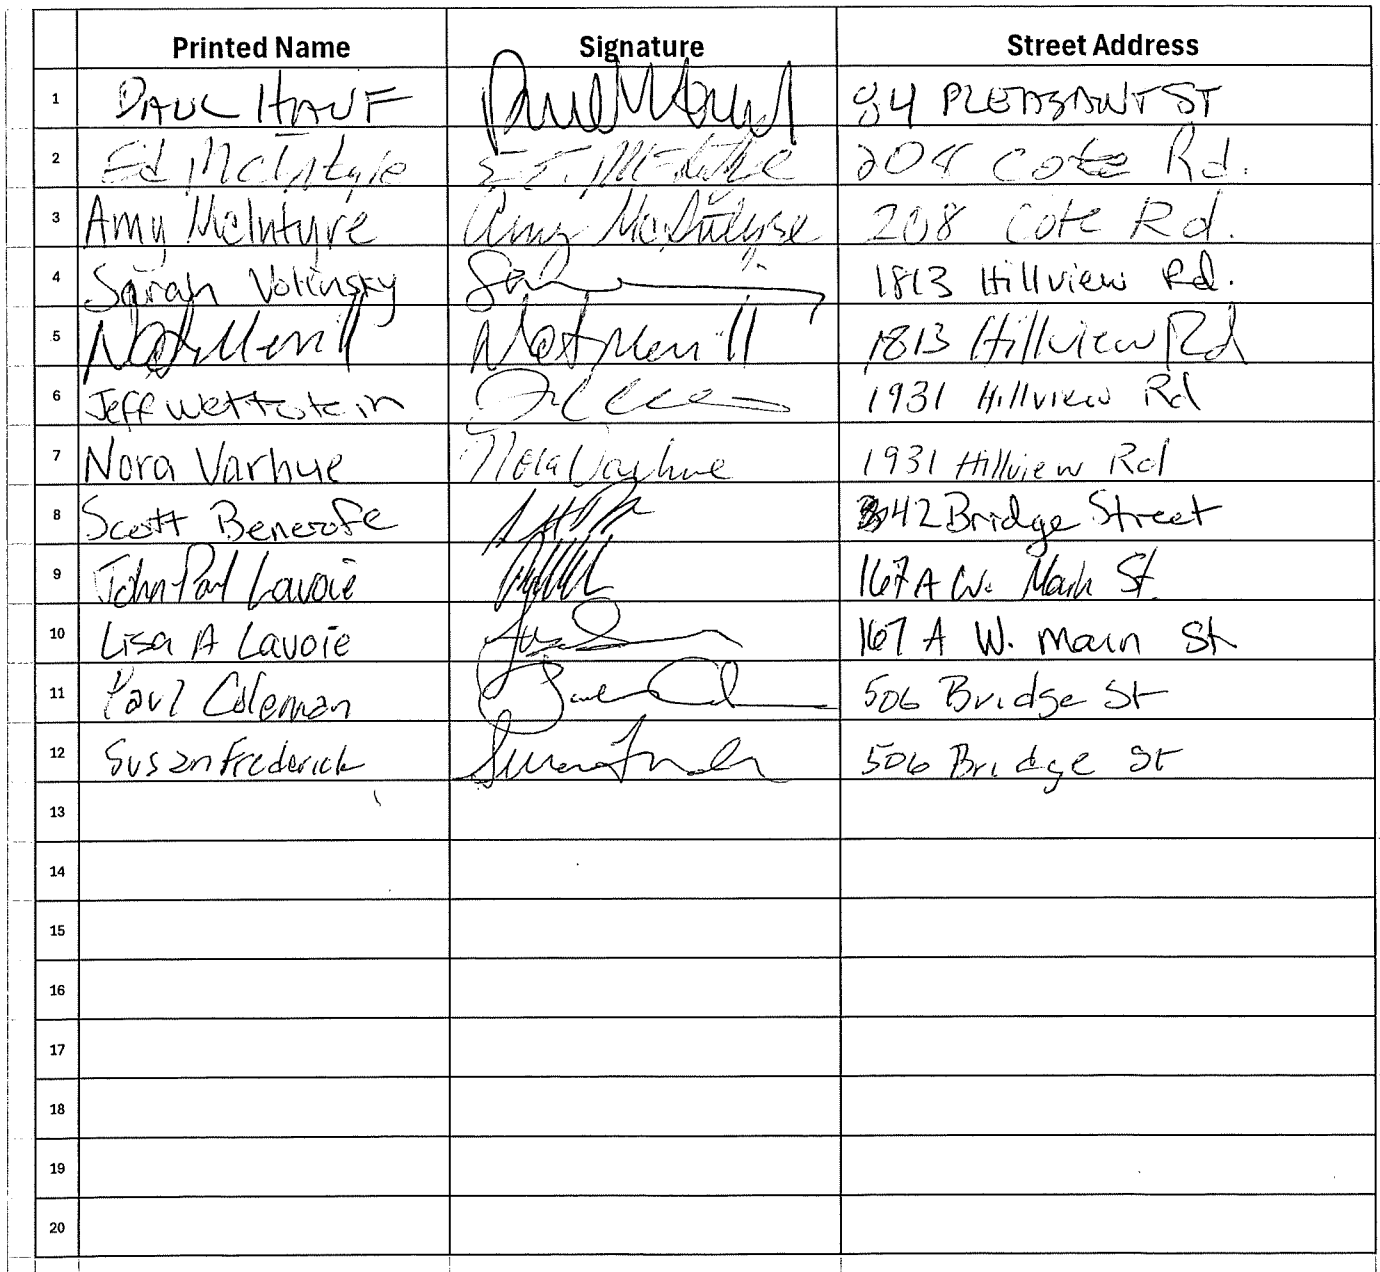 Printed Name Signature Street Address
1 PAUL HAUF Paul Hauf 84 PLEASANT ST
2 Ed McIntyre Ed McIntyre 208 Cote Rd.
3 Amy McIntyre Amy McIntyre 208 Cote Rd.
4 Sarah Volinsky 1813 Hillview Rd.
5 Nat Merrill Nat Merrill 1813 Hillview Rd
6 Jeff Wettstein 1931 Hillview Rd
7 Nora Varhue Nora Varhue 1931 Hillview Rd
8 Scott Benerofe 342 Bridge Street
9 John Paul Lavoie 167 A W. Main St.
10 Lisa A Lavoie 167 A W. Main St
11 Paul Coleman 506 Bridge St
12 Susan Frederick 506 Bridge St
13
14
15
16
17
18
19
20